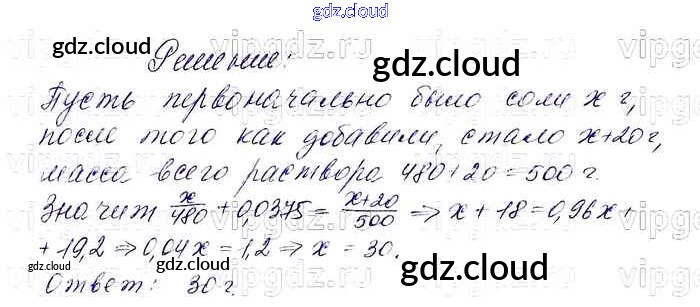 gdz.cloud
gdz.cloud
Решение:
gdz.cloud
vipgdz.ru
Пусть первоначально было соли x г,
после того как добавили, стало x+20 г,
масса всего раствора 480+20=500 г.
Значит x/480 + 0,0375 = x+20/500 ⇒ x + 18 = 0,96x +
+ 19,2 ⇒ 0,04x = 1,2 ⇒ x = 30.
gdz.cloud
gdz.cloud
gdz.cloud
Ответ: 30 г.